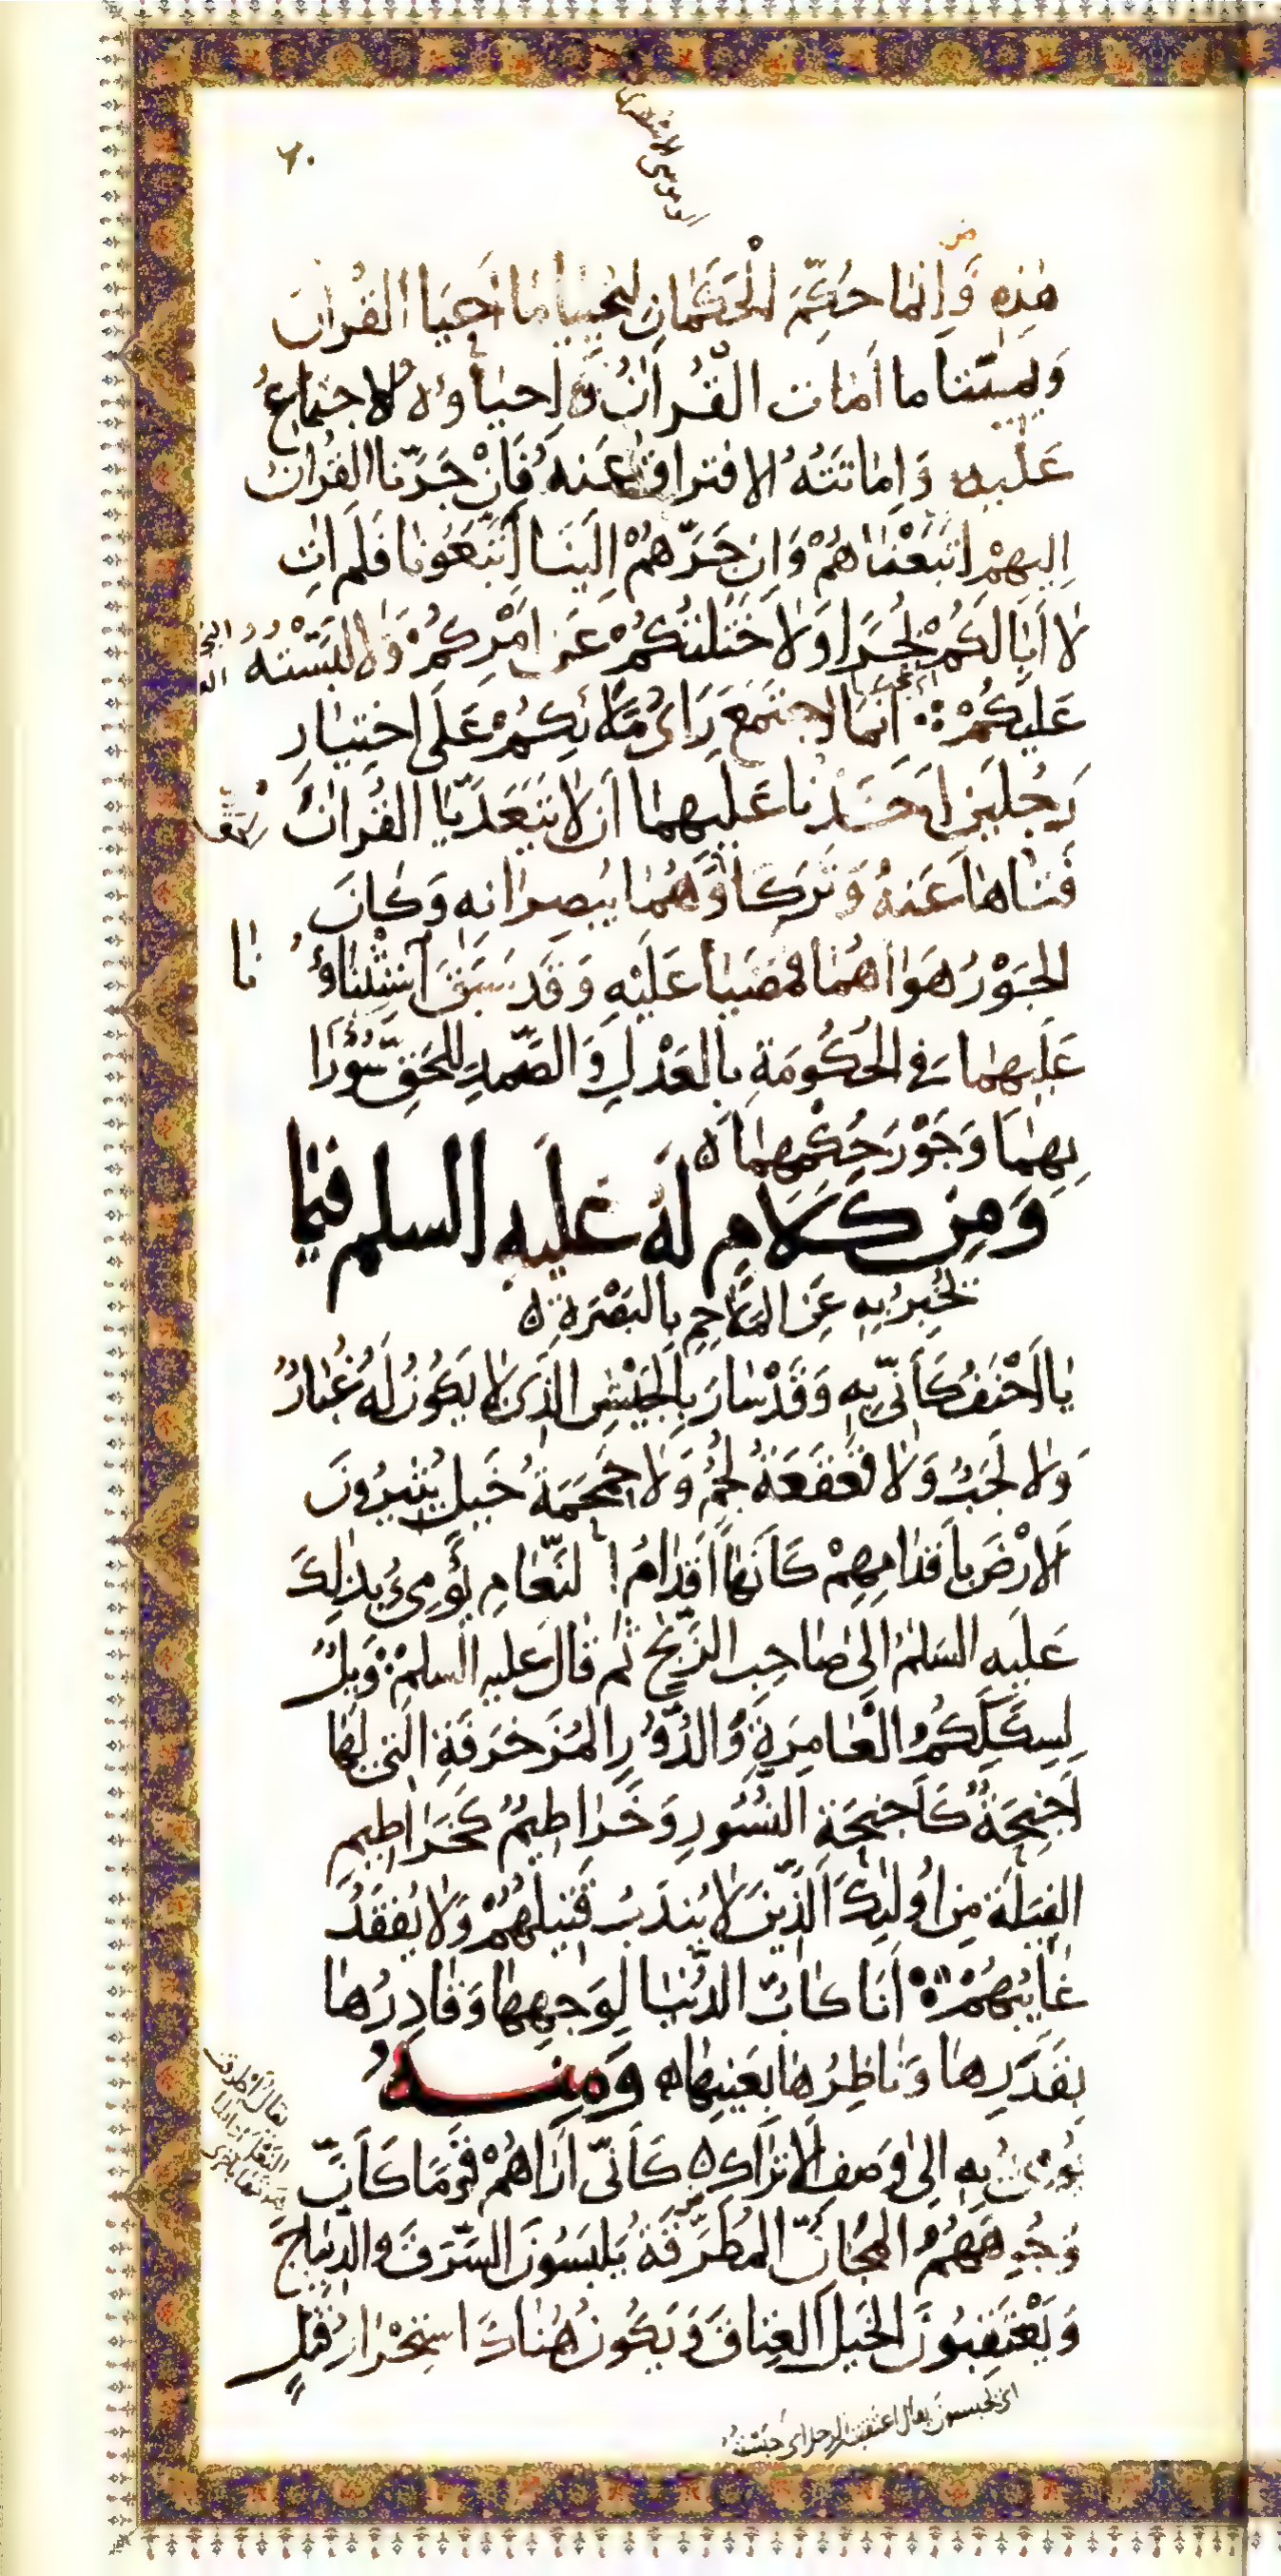 ٦٠
ابو موسى الاشعرى
هٰذِهِ وَاِنَّمَا حُكِّمَ الْحَكَمَانِ لِيُحْيِيَا مَا اَحْيَا الْقُرْاٰنُ
وَيُمِيتَا مَا اَمَاتَ الْقُرْاٰنُ وَاِحْيَاؤُهُ الاجْتِمَاعُ
عَلَيْهِ وَاِمَاتَتُهُ الافْتِرَاقُ عَنْهُ فَاِنْ جَرَّنَا الْقُرْاٰنُ
اِلَيْهِمْ اتَّبَعْنَاهُمْ وَاِنْ جَرَّهُمْ اِلَيْنَا اتَّبَعُونَا فَلَمْ اٰتِ
لَا اَبَا لَكُمْ بُجْرًا وَلَا خَتَلْتُكُمْ عَنْ اَمْرِكُمْ وَلَا لَبَّسْتُهُ
عَلَيْكُمْ اِنَّمَا اجْتَمَعَ رَاْىُ مَلَائِكُمْ عَلَى اخْتِيَارِ
رَجُلَيْنِ اَخَذْنَا عَلَيْهِمَا اَنْ لَا يَتَعَدَّيَا الْقُرْاٰنَ
فَتَاهَا عَنْهُ وَتَرَكَا الْحَقَّ وَهُمَا يُبْصِرَانِهِ وَكَانَ
الْجَوْرُ هَوَاهُمَا فَمَضَيَا عَلَيْهِ وَقَدْ سَبَقَ اسْتِثْنَاؤُنَا
عَلَيْهِمَا فِى الْحُكُومَةِ بِالْعَدْلِ وَالصَّمْدِ لِلْحَقِّ سُوْءَ رَا
يِهِمَا وَجَوْرَ حُكْمِهِمَا ه
وَمِنْ كَلَامٍ لَهُ عَلَيْهِ السلم فِيمَا
يُخْبِرُ بِهِ عَنِ الْمَلَاحِمِ بِالْبَصْرَةِ ه
يَا اَحْنَفُ كَاَنِّى بِهِ وَقَدْ سَارَ بِالْجَيْشِ الَّذِى لَا يَكُونُ لَهُ غُبَارٌ
وَلَا لَجَبٌ وَلَا قَعْقَعَةُ لُجُمٍ وَلَا حَمْحَمَةُ خَيْلٍ يُثِيرُونَ
الْاَرْضَ بِاَقْدَامِهِمْ كَاَنَّهَا اَقْدَامُ النَّعَامِ يُؤْمِىُ بِذٰلِكَ
عَلَيْهِ السَلٰمُ اِلٰى صَاحِبِ الزَّنْجِ ثُمَّ قَالَ عَلَيْهِ السلم وَيْلٌ
لِسِكَكِكُمُ الْعَامِرَةِ وَالدُّوْرِ الْمُزَخْرَفَةِ الَّتِى لَهَا
اَجْنِحَةٌ كَاَجْنِحَةِ النُّسُورِ وَخَرَاطِيمُ كَخَرَاطِيمِ
الْفِيَلَةِ مِنْ اُولٰئِكَ الَّذِيْنَ لَا يُنْدَبُ قَتِيلُهُمْ وَلَا يُفْقَدُ
غَايِبُهُمْ اَنَا كَابُّ الدُّنْيَا لِوَجْهِهَا وَقَادِرُهَا
بِقَدَرِهَا وَنَاظِرُهَا بِعَيْنِهَا ه وَمِنْهُ
يُومِىُ بِهِ اِلٰى وَصْفِ الْاَتْرَاكِ ه كَاَنِّى اَرَاهُمْ قَوْمًا كَاَنَّ
وُجُوهَهُمُ الْمَجَانُّ الْمُطَرَّقَةُ يَلْبَسُونَ السَّرَقَ وَالدِّيبَاجَ
وَيَعْتَقِبُونَ الْخَيْلَ الْعِتَاقَ وَيَكُونُ هُنَاكَ اسْتِحْرَارُ قَتْلٍ
اى يحبسون يقال اعتقبت الرجل اى حبسته